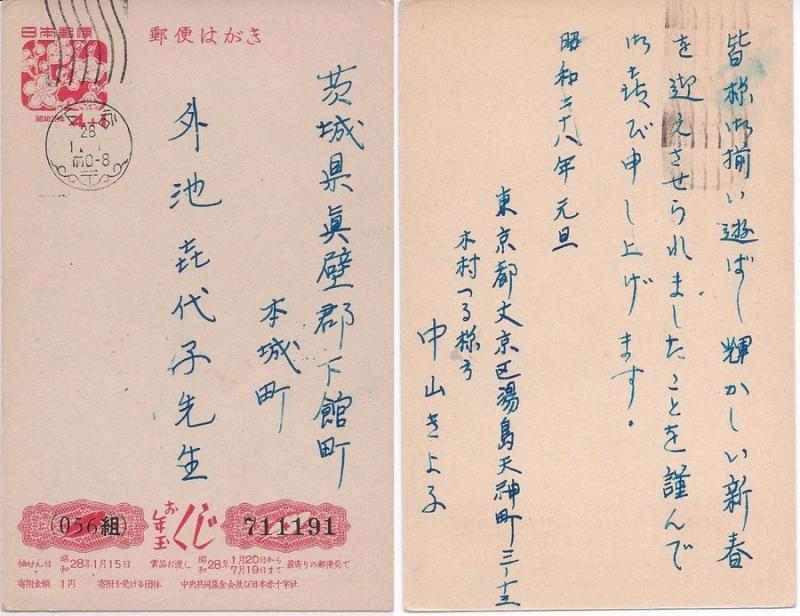 日本郵便
郵便はがき
昭和28年
4+1
28
1. 1
前0-8
茨城県眞壁郡下館町
本城町
外池㐂代子先生
(056組)
お年玉くじ
711191
抽せん日 昭和28年1月15日 賞品お渡し 昭和28年1月20日から7月19日まで 最寄りの郵便局で
寄附金額 1円 寄附を受ける団体 中央共同募金会及び日本赤十字社
皆様御揃い遊ばし輝かしい新春
を迎えさせられましたことを謹んで
御㐂び申し上げます。
昭和二十八年元旦
東京都文京区湯島天神町三ノ十三
木村つる様方
中山きよ子